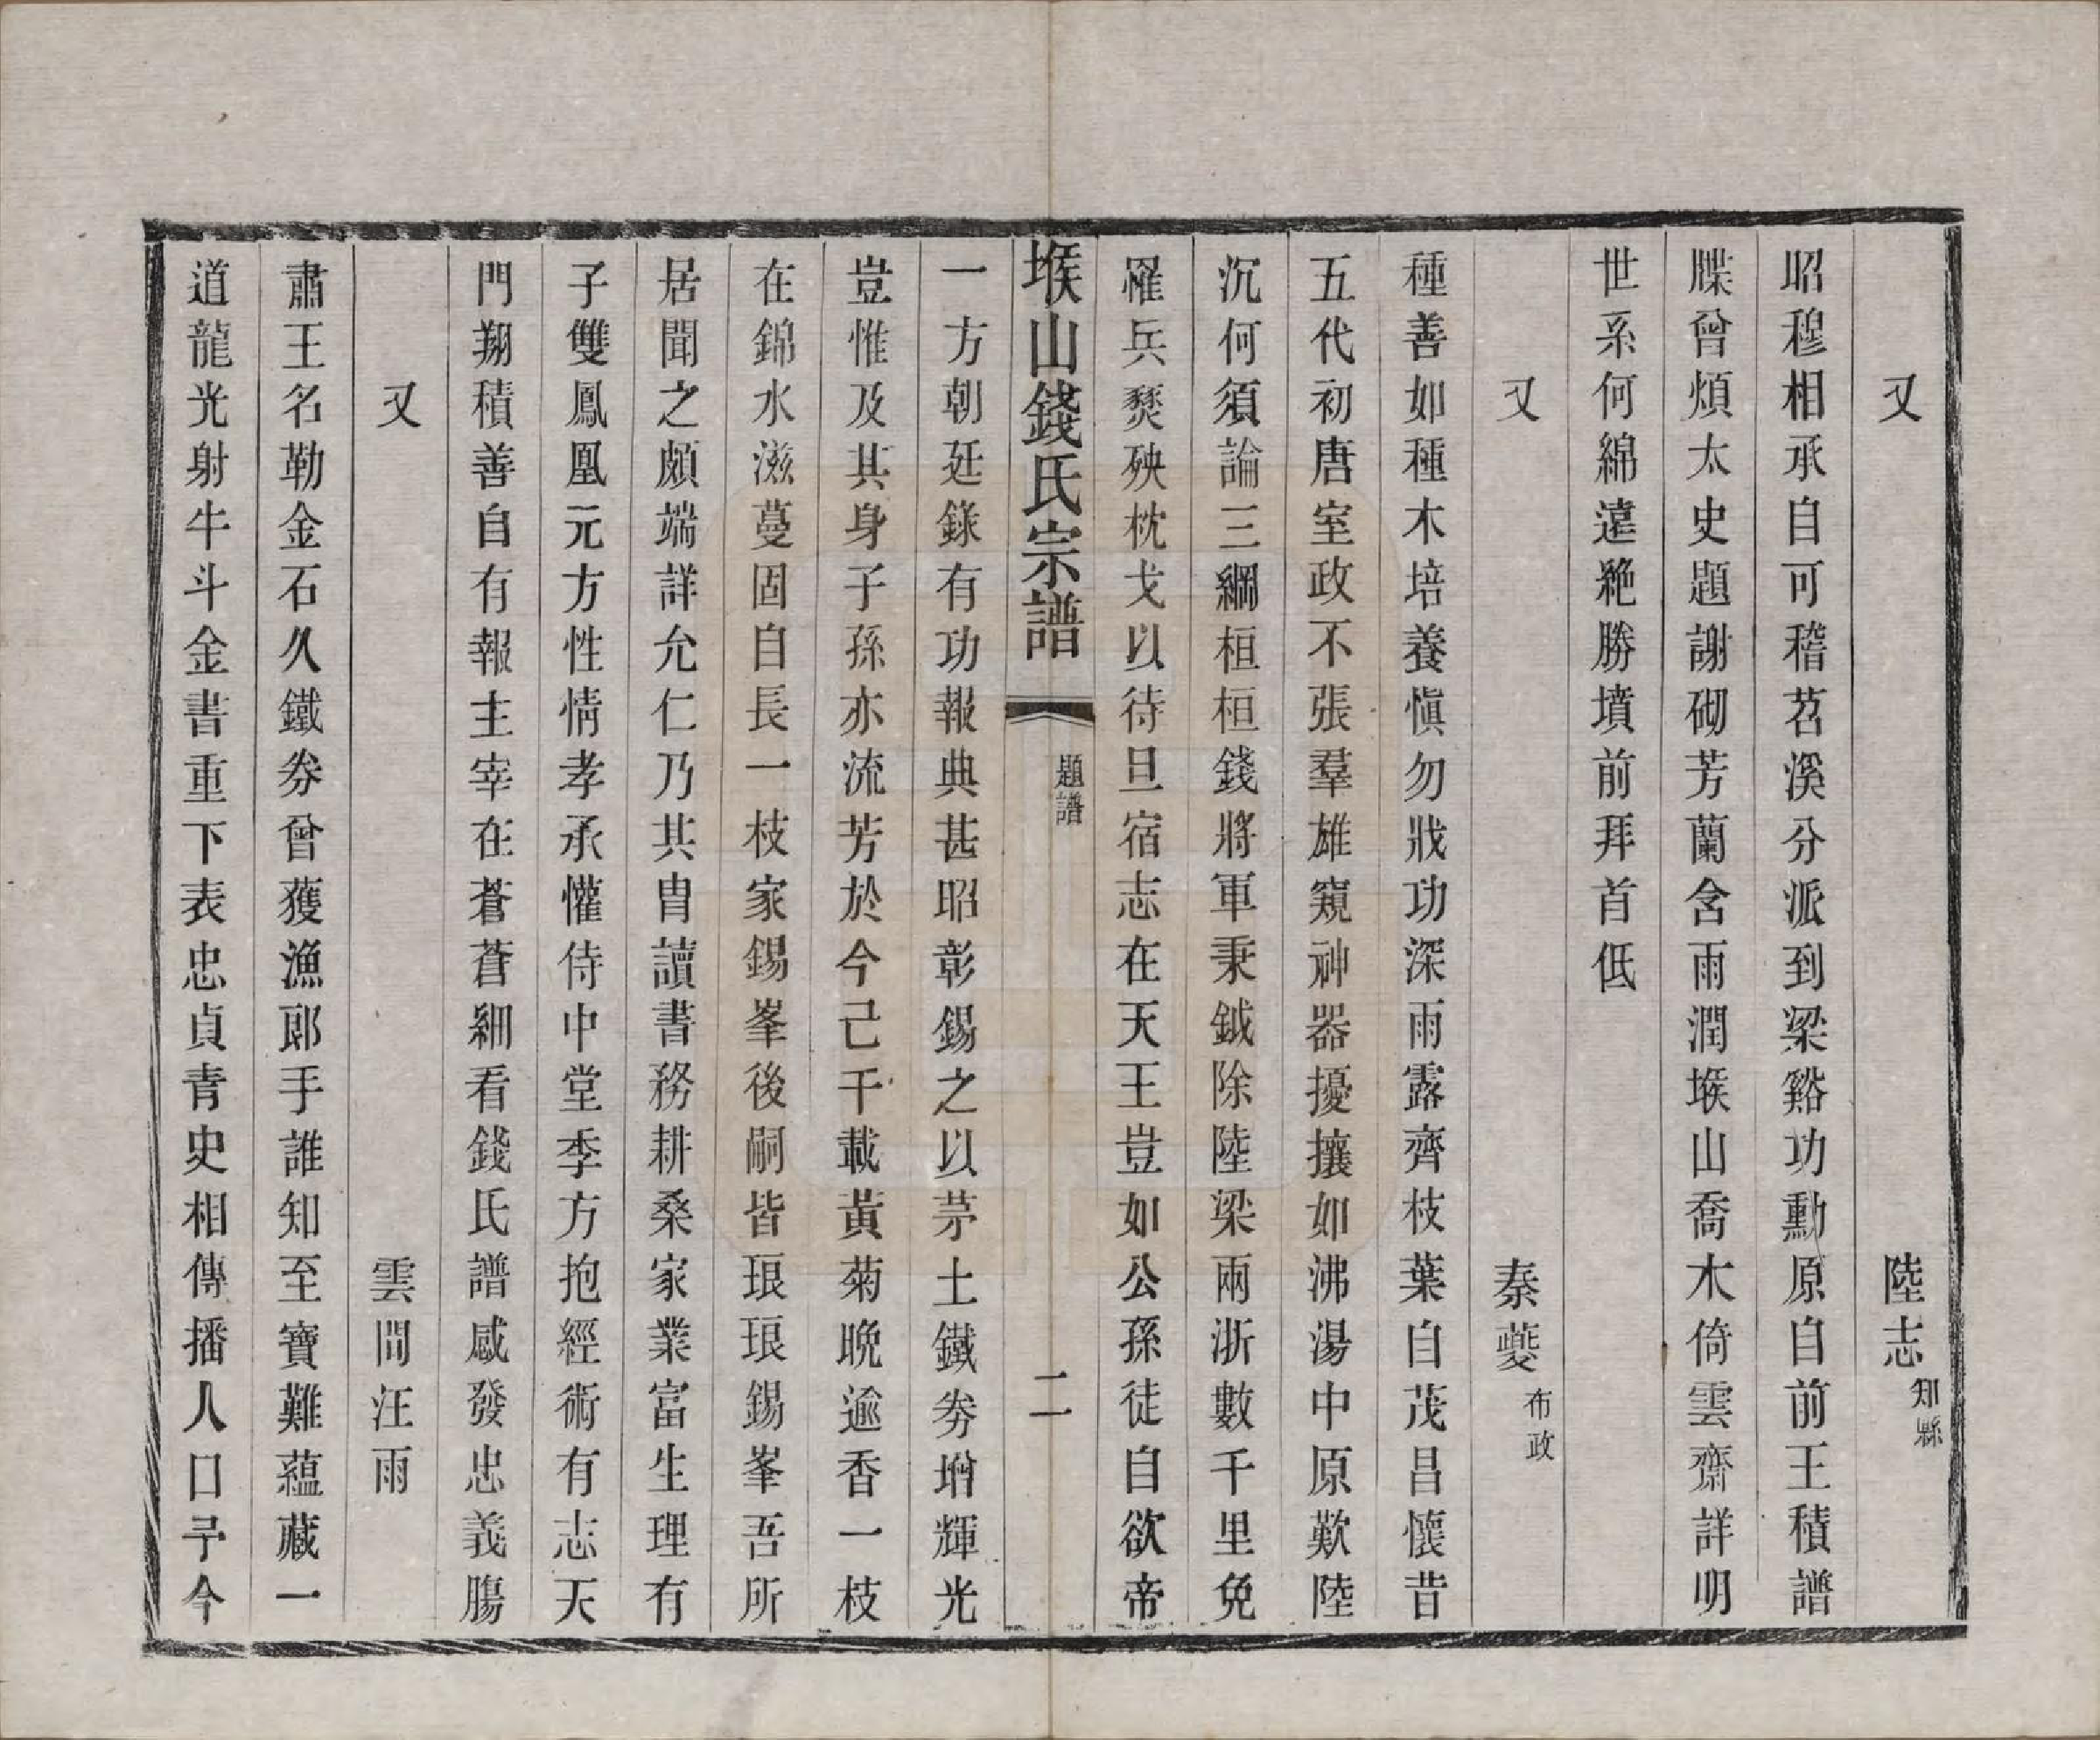 又　陸志知縣
昭穆相承自可稽苕溪分派到梁谿功勳原自前王積譜
牒曾煩太史題謝砌芳蘭含雨潤堠山喬木倚雲齋詳明
世系何綿遠絶勝墳前拜首低
又　秦夔布政
種善如種木培養愼勿戕功深雨露齊枝葉自茂昌懷昔
五代初唐室政不張羣雄窺神器擾攘如沸湯中原歎陸
沉何須論三綱桓桓錢將軍秉鉞除陸梁兩浙數千里免
罹兵燹殃枕戈以待旦宿志在天王豈如公孫徒自欲帝
堠山錢氏宗譜　題譜　二
一方朝廷錄有功報典甚昭彰錫之以茅土鐵劵增輝光
豈惟及其身子孫亦流芳於今己千載黃菊晚逾香一枝
在錦水滋蔓固自長一枝家錫峯後嗣皆琅琅錫峯吾所
居聞之頗端詳允仁乃其胄讀書務耕桑家業富生理有
子雙鳳凰元方性情孝承懽侍中堂季方抱經術有志天
門翔積善自有報主宰在蒼蒼細看錢氏譜感發忠義膓
又　雲間汪雨
肅王名勒金石久鐵劵曾獲漁郎手誰知至寶難蘊藏一
道龍光射牛斗金書重下表忠貞青史相傳播人口予今